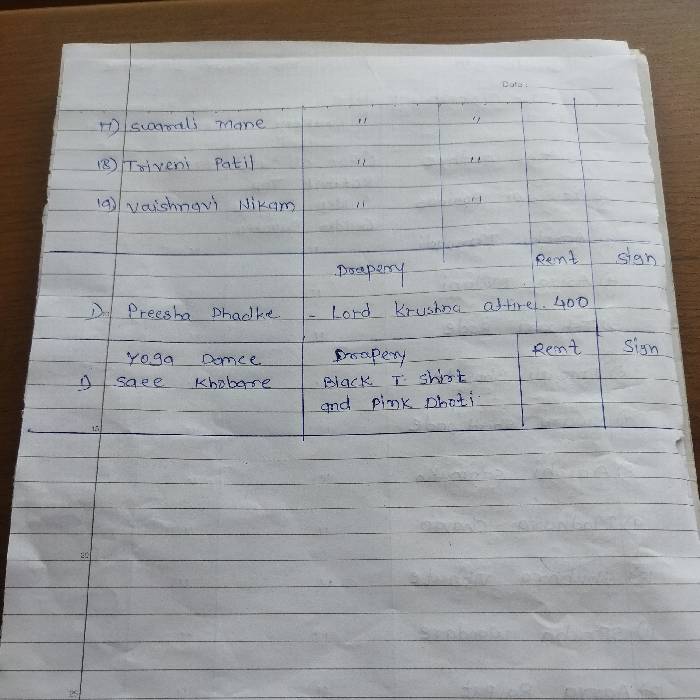 Date :
17) Swarali Mane " "
18) Triveni Patil " "
19) Vaishnavi Nikam " "
Drapery Rent Sign
1) Preesha Phadke - Lord Krushna attire. 400
Yoga Dance Drapery Rent Sign
1) Saee Khobare Black T shirt
and Pink Dhoti
15
20
25